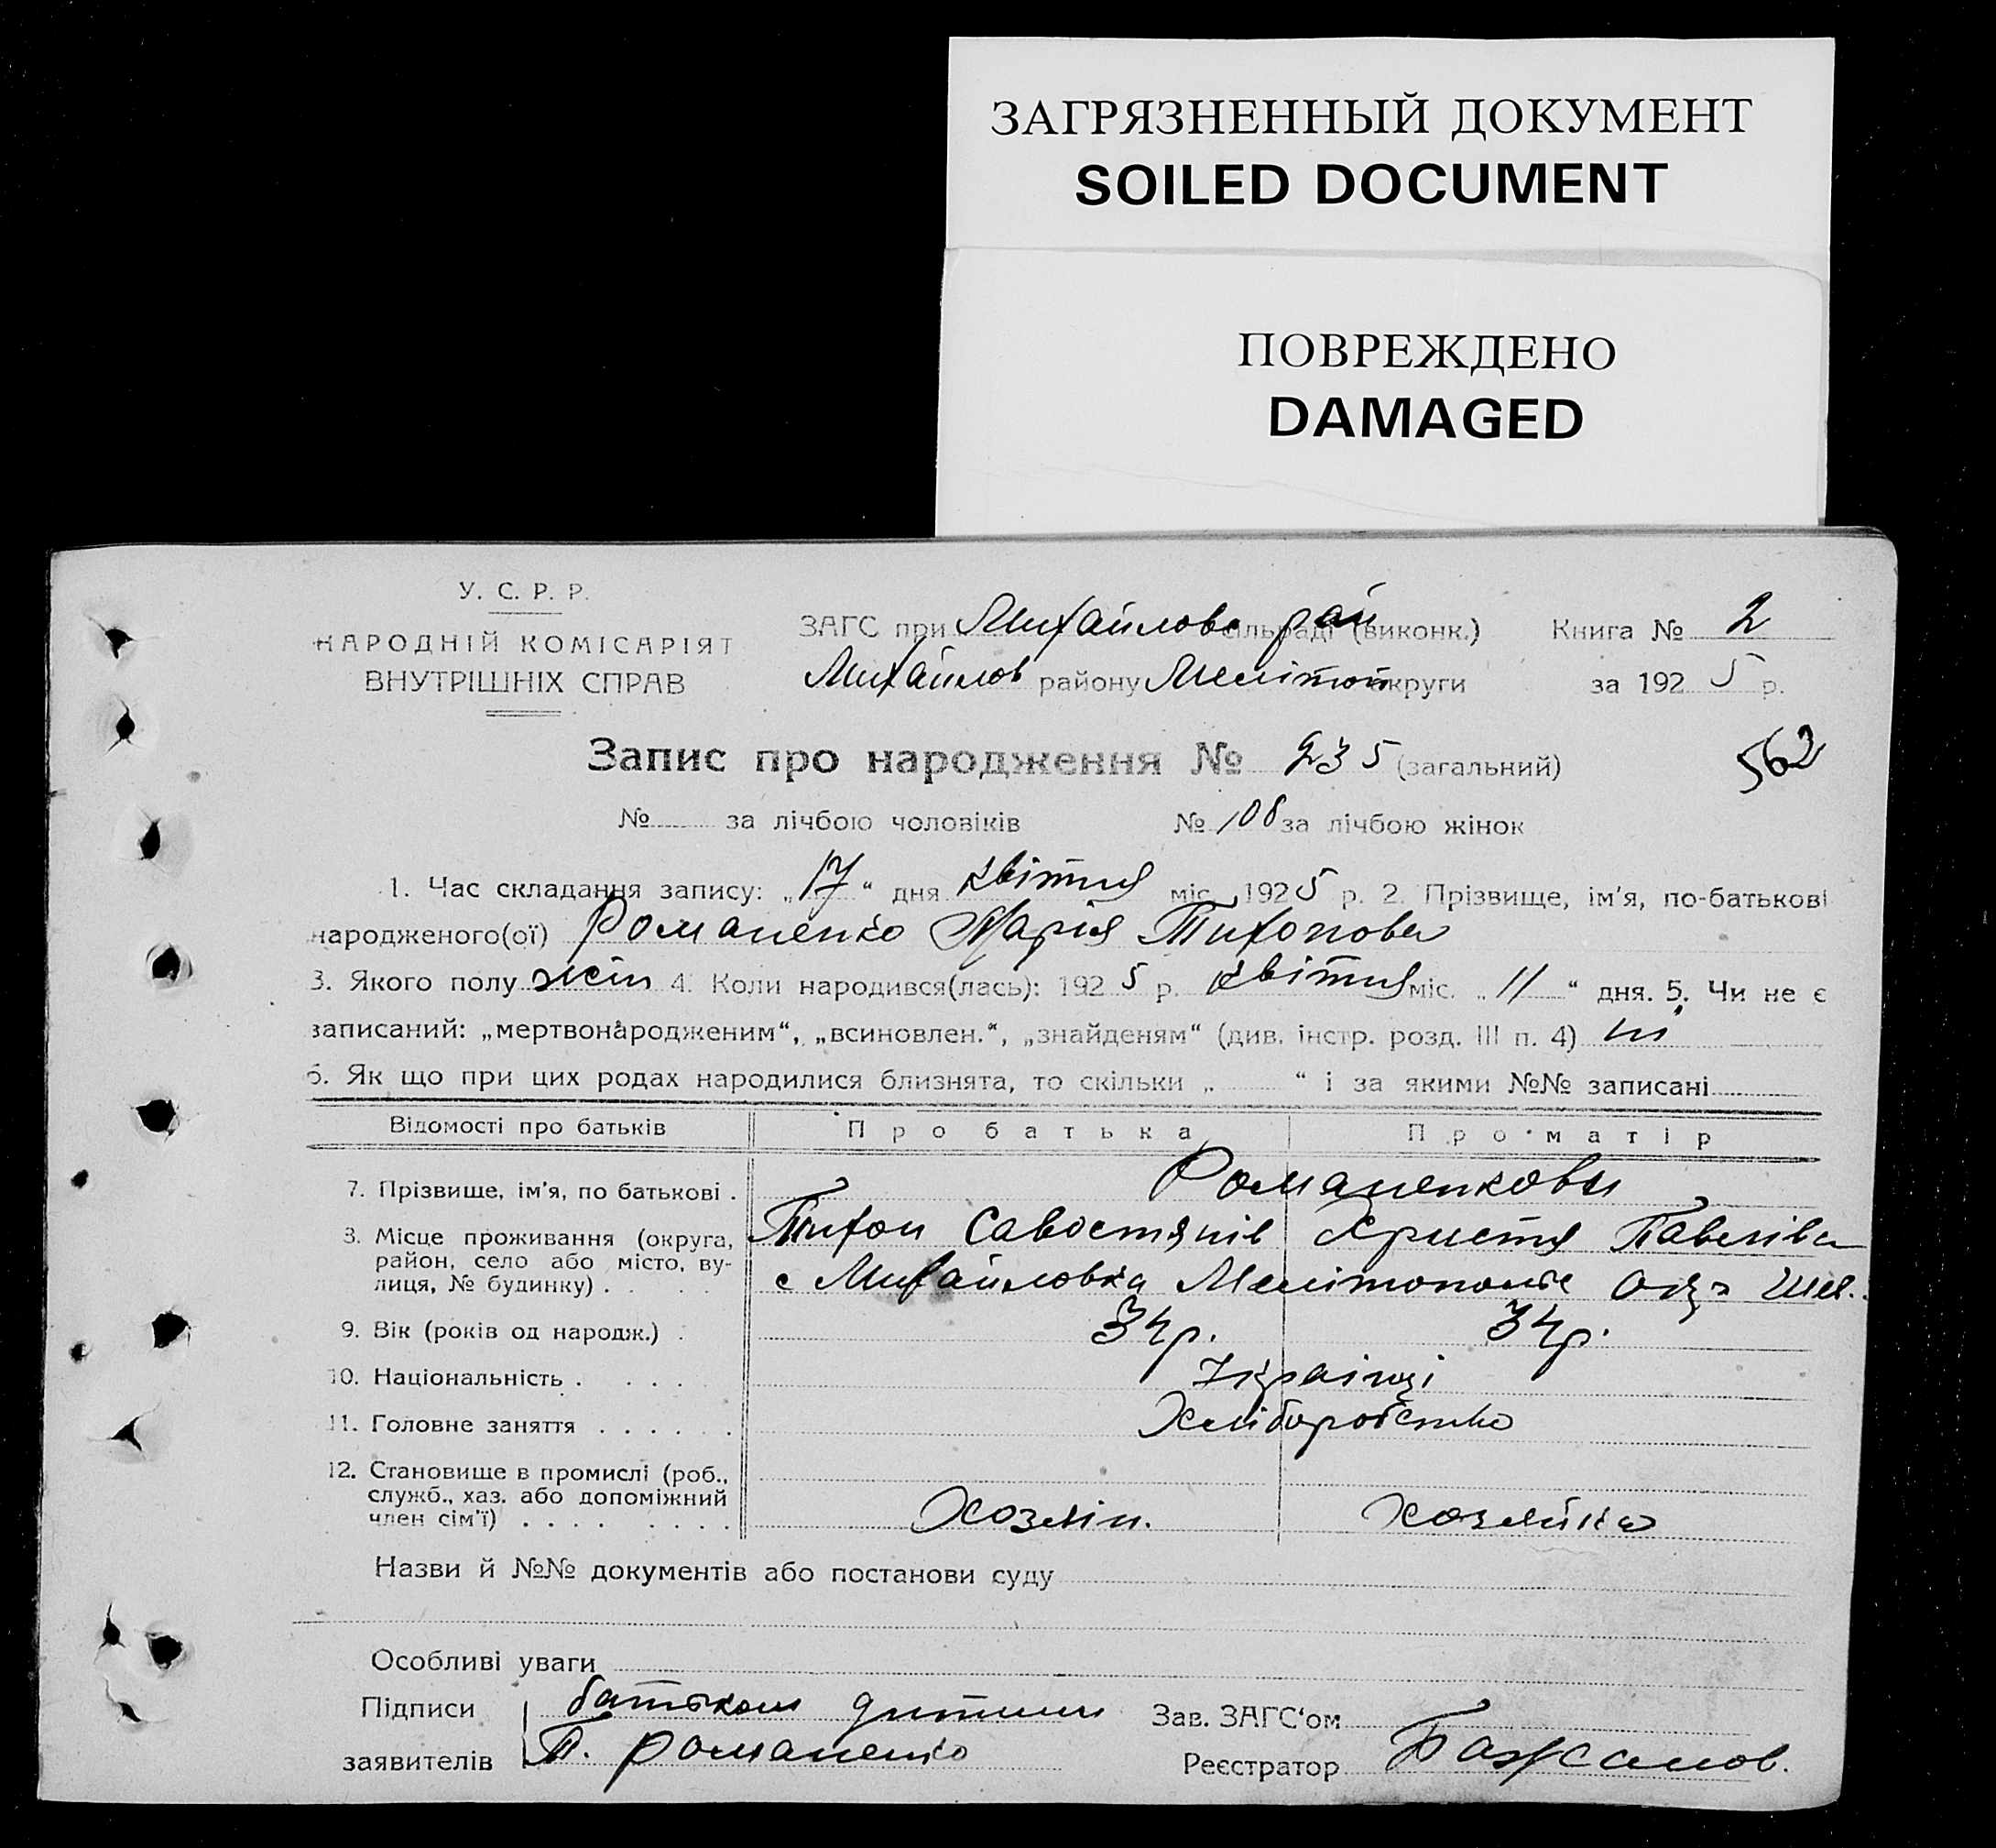 ЗАГРЯЗНЕННЫЙ ДОКУМЕНТ
SOILED DOCUMENT
ПОВРЕЖДЕНО
DAMAGED
У. С. Р. Р.
НАРОДНІЙ КОМІСАРІЯТ
ВНУТРІШНІХ СПРАВ
ЗАГС при Михайлово рай сільраді (виконк.) Книга № 2
Михайлов району Мелітоп округи за 1925 р.
Запис про народження № 235 (загальний)
562
№ за лічбою чоловіків № 108 за лічбою жінок
1. Час складання запису: „17“ дня квітня міс. 1925 р. 2. Прізвище, ім'я, по-батькові
народженого(ої) Романенко Марія Тихонова
3. Якого полу жін 4. Коли народився(лась): 1925 р. квітня міс. „11“ дня. 5. Чи не є
записаний: „мертвонародженим“, „всиновлен.“, „знайденям“ (див. інстр. розд. III п. 4) ні
6. Як що при цих родах народилися близнята, то скільки „ “ і за якими №№ записані
Відомості про батьків Про батька Про матір
7. Прізвище, ім'я, по батькові . Романенкови
8. Місце проживання (округа, Тихон Савостянів Христя Павлівна
район, село або місто, ву-
лиця, № будинку) . . . с Михайловка Мелітопольс
9. Вік (років од народж.) . 34р. 34р.
10. Національність . . . . Українці
11. Головне заняття . . . . . . Хліборобство
12. Становище в промислі (роб.,
служб., хаз. або допоміжний
член сім'ї) . . . . . . . . Хозяін. хозяйка
Назви й №№ документів або постанови суду
Особливі уваги
Підписи батьком дитини Зав. ЗАГС'ом
заявителів Т. Романенко Реєстратор Бажанов.